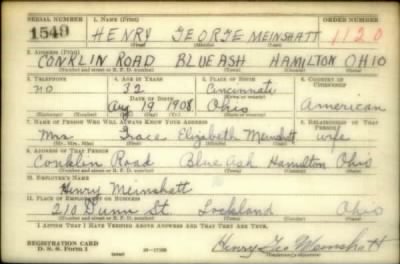 SERIAL NUMBER 1. NAME (Print) ORDER NUMBER
1549 HENRY GEORGE MEINSHATT 1120
(First) (Middle) (Last)
2. ADDRESS (Print)
CONKLIN ROAD BLUE ASH HAMILTON OHIO
(Number and street or R. F. D. number) (Town) (County) (State)
3. TELEPHONE 4. AGE IN YEARS 5. PLACE OF BIRTH 6. COUNTRY OF CITIZENSHIP
no 32 Cincinnati
DATE OF BIRTH (Town or county)
Aug 19 1908 Ohio American
(Mo.) (Day) (Yr.) (State or country)
7. NAME OF PERSON WHO WILL ALWAYS KNOW YOUR ADDRESS 8. RELATIONSHIP OF THAT PERSON
Mrs Grace Elizabeth Meinshatt wife
(Mr., Mrs., Miss) (First) (Middle) (Last)
9. ADDRESS OF THAT PERSON
Conklin Road Blue Ash Hamilton Ohio
(Number and street or R. F. D. number) (Town) (County) (State)
10. EMPLOYER'S NAME
Henry Meinshatt
11. PLACE OF EMPLOYMENT OR BUSINESS
210 Dunn St. Lockland Ohio
(Number and street or R. F. D. number) (Town) (County) (State)
I AFFIRM THAT I HAVE VERIFIED ABOVE ANSWERS AND THAT THEY ARE TRUE.
REGISTRATION CARD
D. S. S. Form 1 16—17105 Henry Geo Meinshatt